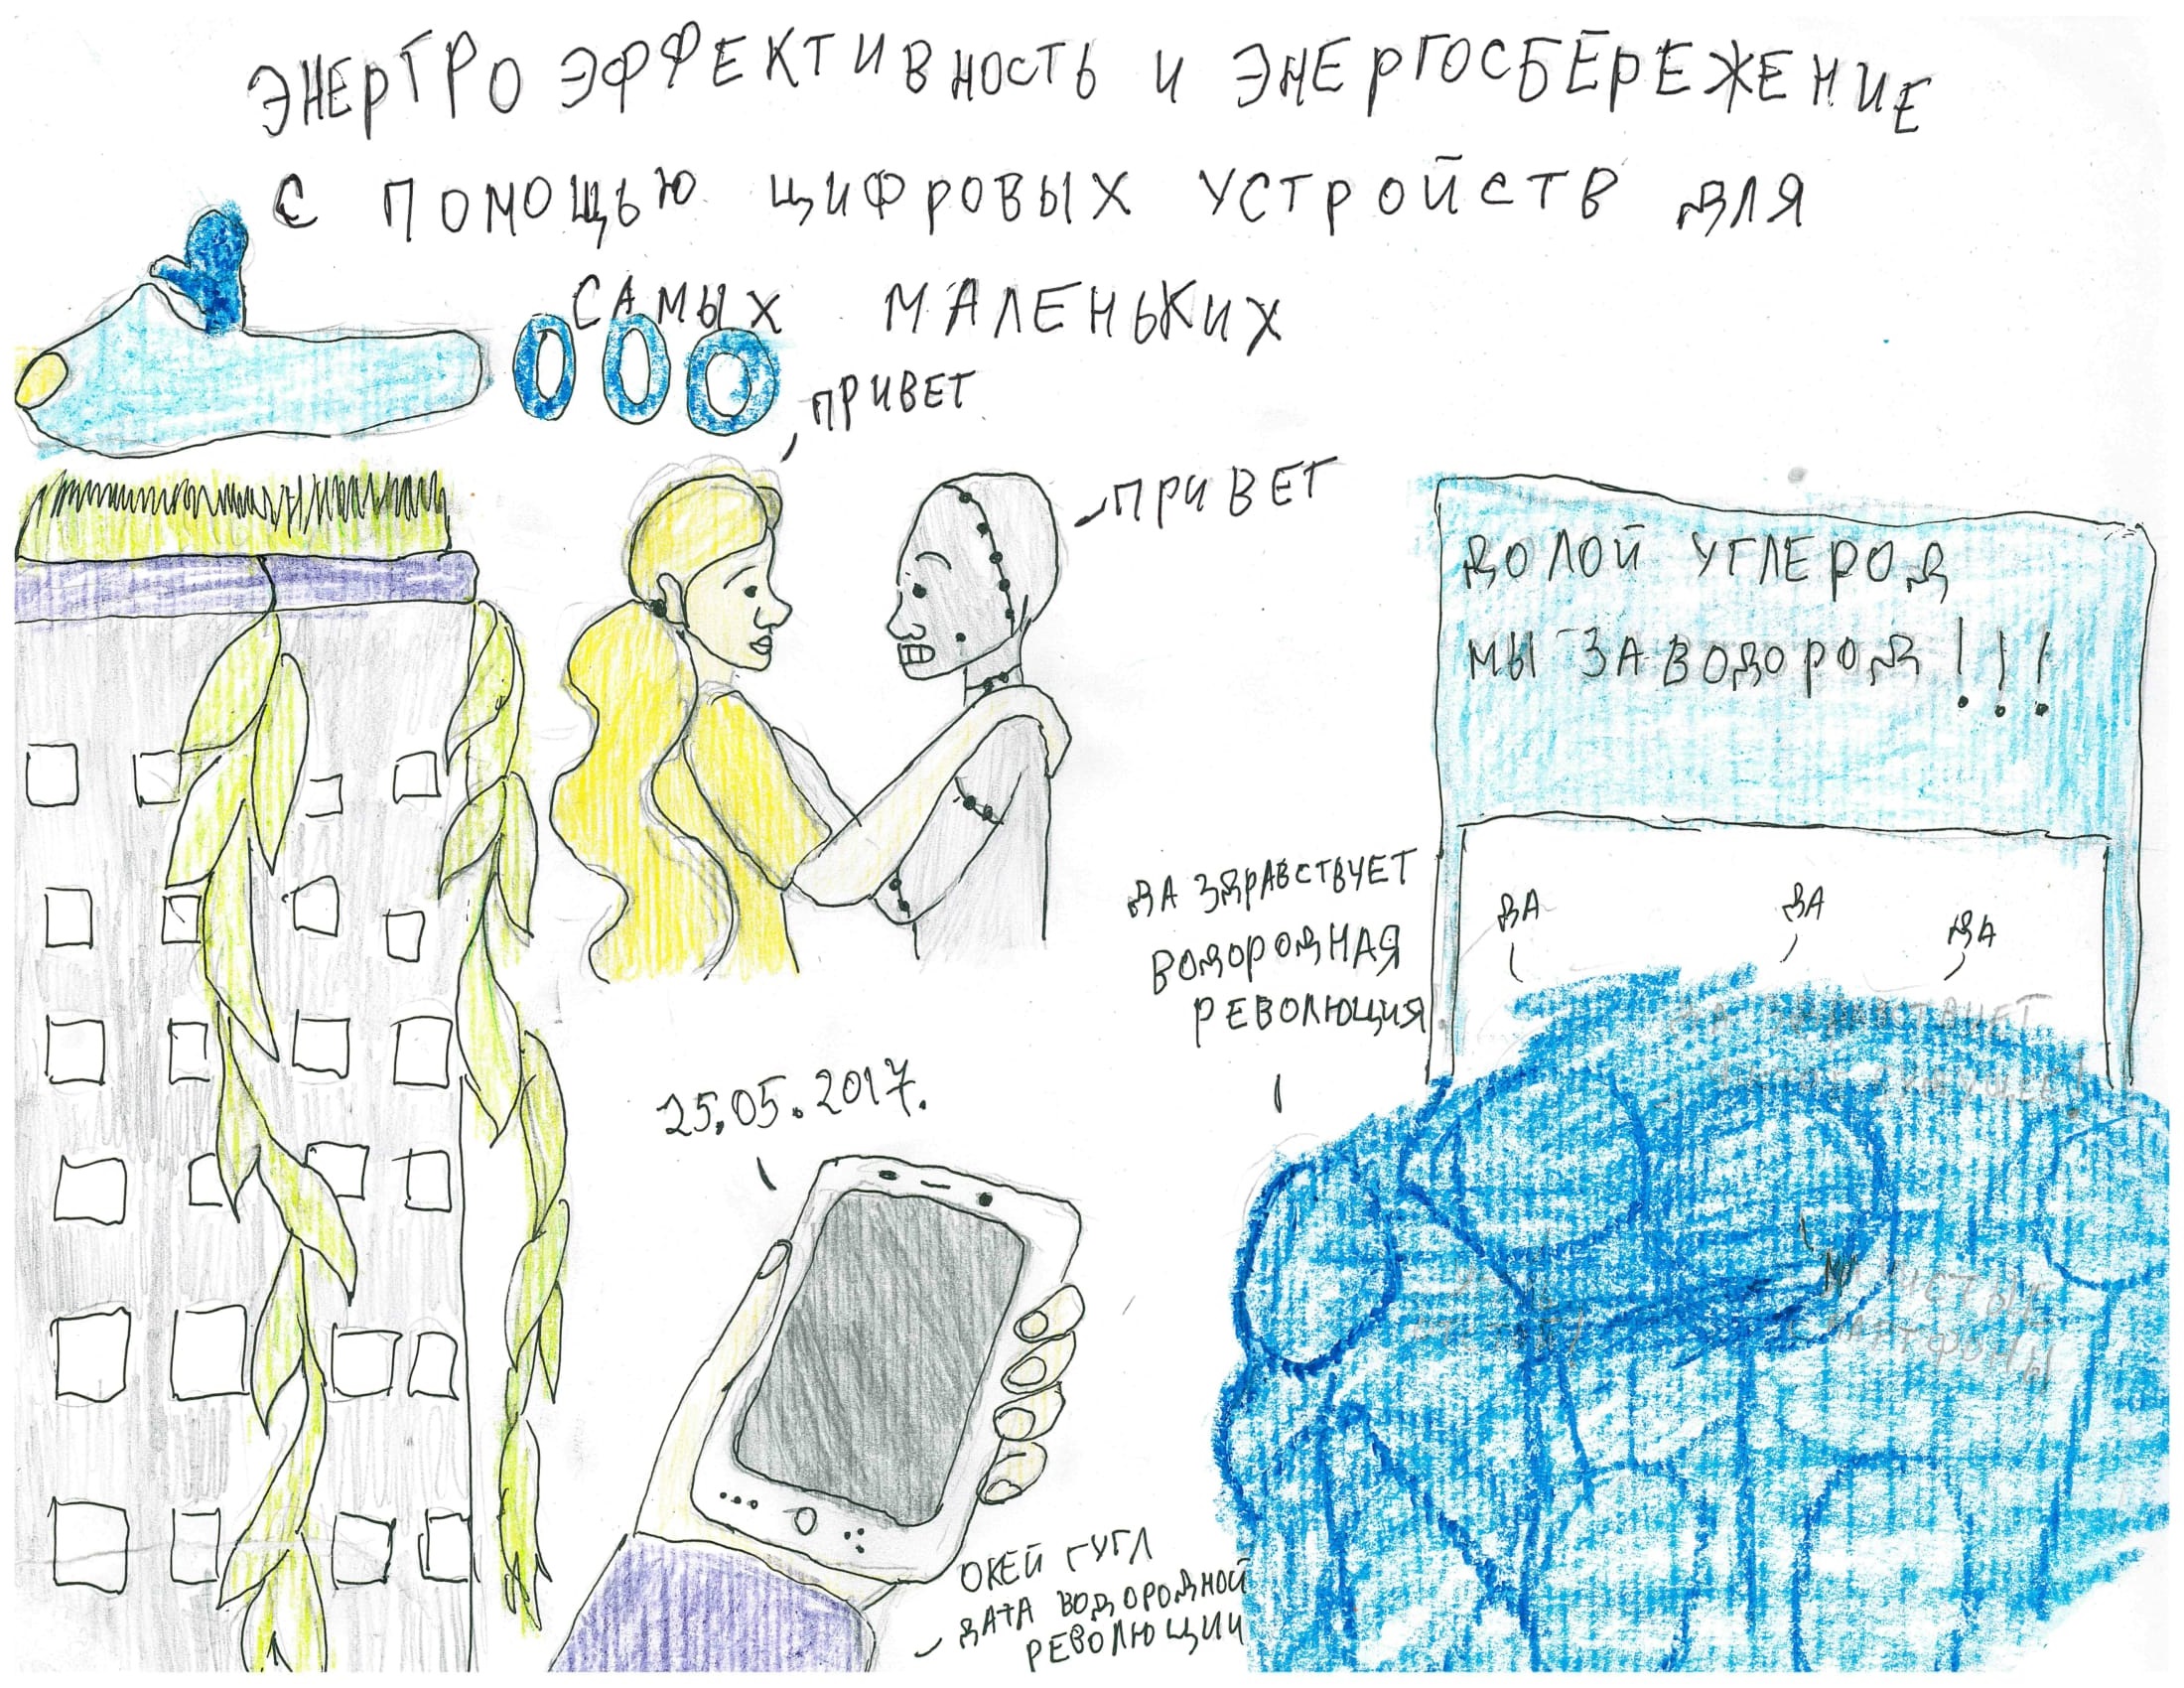 ЭНЕРГРОЭФФЕКТИВНОСТЬ И ЭНЕРГОСБЕРЕЖЕНИЕ
С ПОМОЩЬЮ ЦИФРОВЫХ УСТРОЙСТВ ДЛЯ
САМЫХ МАЛЕНЬКИХ
ПРИВЕТ
ПРИВЕТ
ДОЛОЙ УГЛЕРОД
МЫ ЗА ВОДОРОД!!!
ДА ЗДРАВСТВУЕТ
ВОДОРОДНАЯ
РЕВОЛЮЦИЯ
ДА
ДА
ДА
ДА ЗДРАВСТВУЕТ
25.05.2017.
ОКЕЙ ГУГЛ
ДАТА ВОДОРОДНОЙ
РЕВОЛЮЦИИ